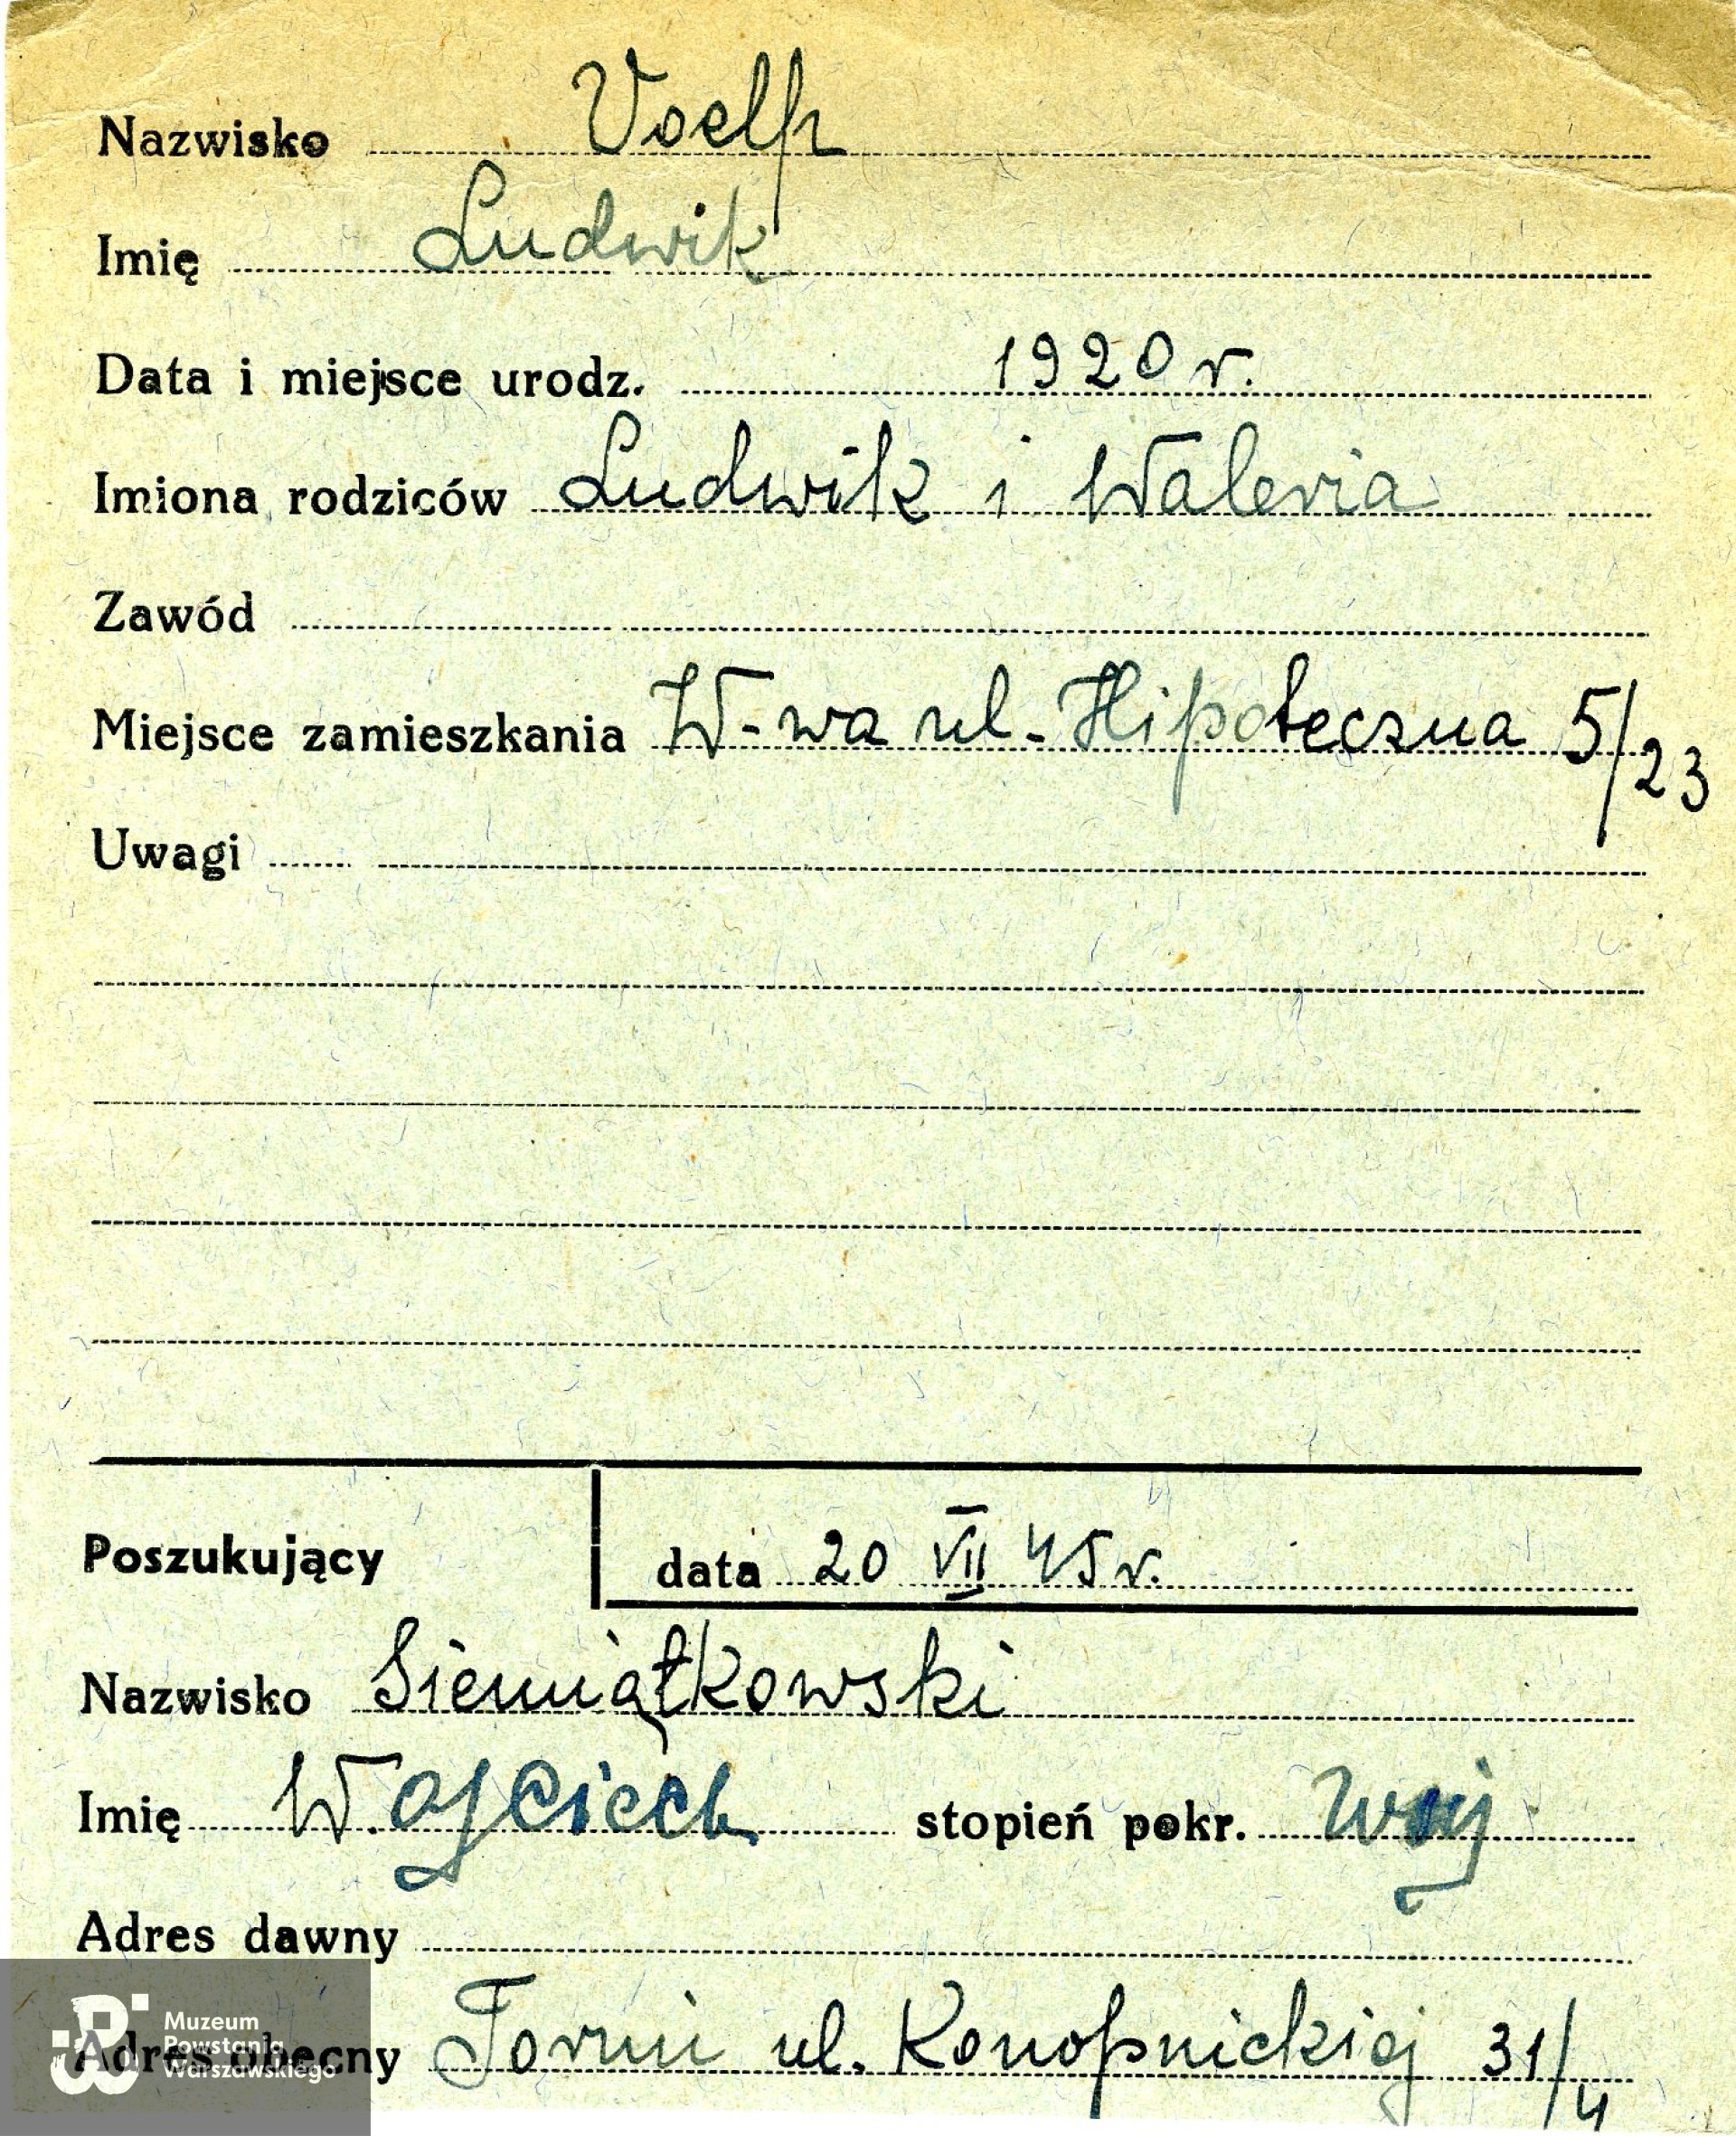 Nazwisko Voelp
Imię Ludwik
Data i miejsce urodz. 1920 r.
Imiona rodziców Ludwik i Waleria
Zawód
Miejsce zamieszkania W-wa ul. Hipoteczna 5/23
Uwagi
Poszukujący data 20 VII 45 r.
Nazwisko Siemiątkowski
Imię Wojciech stopień pokr. wuj
Adres dawny
Adres obecny Toruń ul. Konopnickiej 31/4
Muzeum
Powstania
Warszawskiego